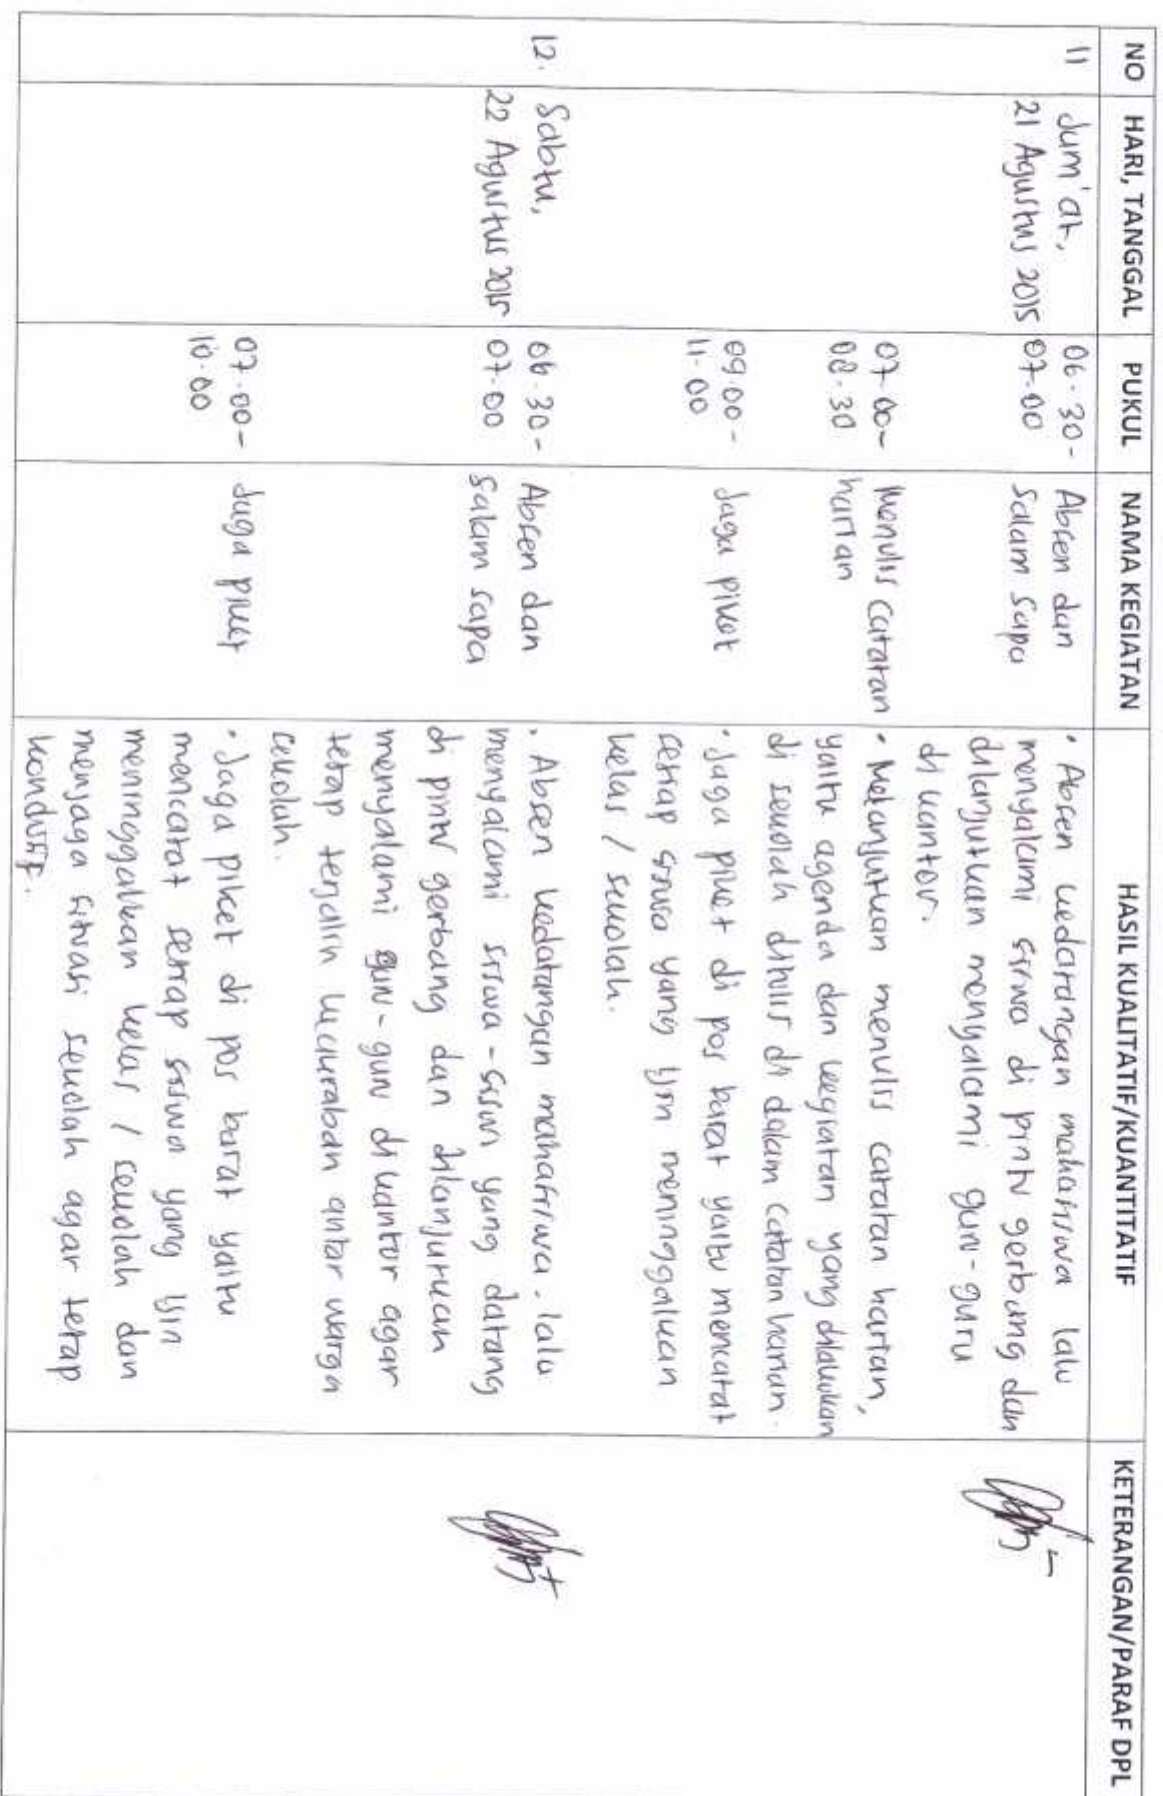 NO HARI, TANGGAL PUKUL NAMA KEGIATAN HASIL KUALITATIF/KUANTITATIF KETERANGAN/PARAF DPL
11 Jum'at, 06.30- Absen dan • Absen kedatangan mahasiswa lalu
21 Agustus 2015 07.00 salam sapa menyalami siswa di pintu gerbang dan
dilanjutkan menyalami guru-guru
di kantor.
07.00- Menulis catatan • Melanjutkan menulis catatan harian,
08.30 harian yaitu agenda dan kegiatan yang dilakukan
di sekolah ditulis di dalam catatan harian.
09.00- Jaga piket • Jaga piket di pos barat yaitu mencatat
11.00 setiap siswa yang ijin meninggalkan
kelas / sekolah.
12. Sabtu, 06.30- Absen dan • Absen kedatangan mahasiswa, lalu
22 Agustus 2015 07.00 salam sapa menyalami siswa-siswi yang datang
di pintu gerbang dan dilanjutkan
menyalami guru-guru di kantor agar
tetap terjalin keakraban antar warga
sekolah.
07.00- Jaga piket • Jaga piket di pos barat yaitu
10.00 mencatat setiap siswa yang ijin
meninggalkan kelas / sekolah dan
menjaga situasi sekolah agar tetap
kondusif.